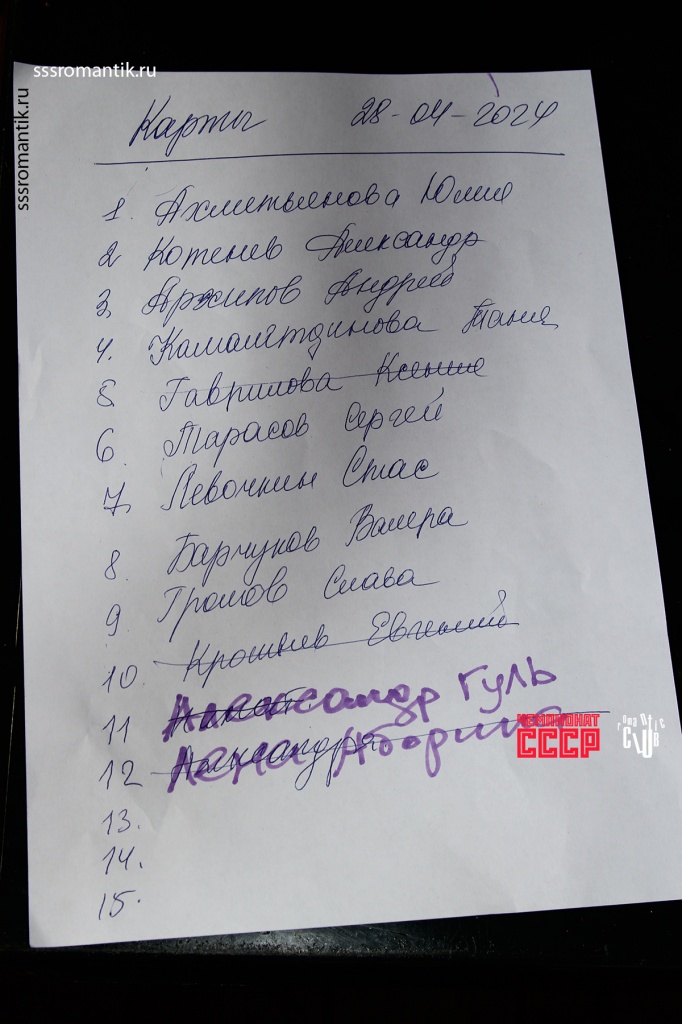 sssromantik.ru
sssromantik.ru
Карты 28-04-2024
1. Ахметьянова Юлия
2 Котенев Александр
3. Архипов Андрей
4. Камалетдинова Таня
5 Гаврилова Ксения
6. Тарасов Сергей
7. Левочкин Стас
8. Барчуков Валера
9. Громов Слава
10. Евгений
11 Александр Гуль
12 Лена
13.
14.
15.
ЧЕМПИОНАТ
СССР
romantic
CLUB